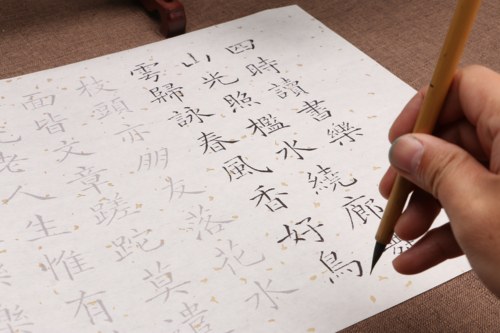 四時讀書樂
山光照檻水繞廊舞
雲歸詠春風香好鳥
枝頭亦朋友落花水
面皆文章蹉跎莫遣
老人生惟有